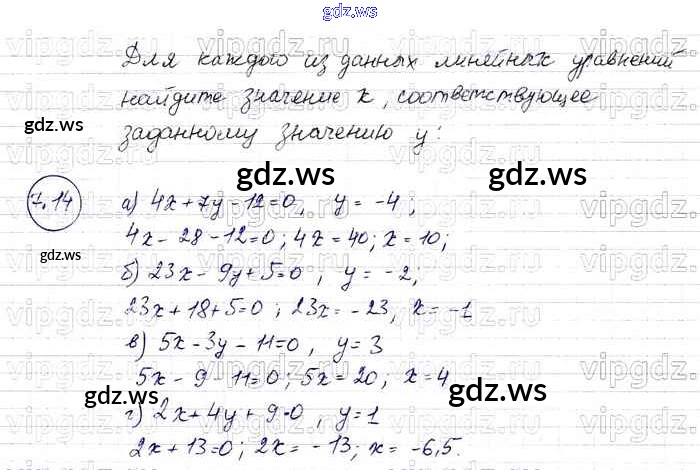 gdz.ws
Для каждого из данных линейных уравнений
найдите значение x, соответствующее
gdz.ws
заданному значению y:
gdz.ws gdz.ws
7.14 а) 4x + 7y - 12 = 0, y = -4;
4x - 28 - 12 = 0; 4x = 40; x = 10;
gdz.ws
б) 23x - 9y + 5 = 0, y = -2;
23x + 18 + 5 = 0; 23x = -23, x = -1
в) 5x - 3y - 11 = 0, y = 3
5x - 9 - 11 = 0; 5x = 20; x = 4
gdz.ws gdz.ws
г) 2x + 4y + 9 = 0, y = 1
2x + 13 = 0; 2x = -13; x = -6,5.
gdz.ws